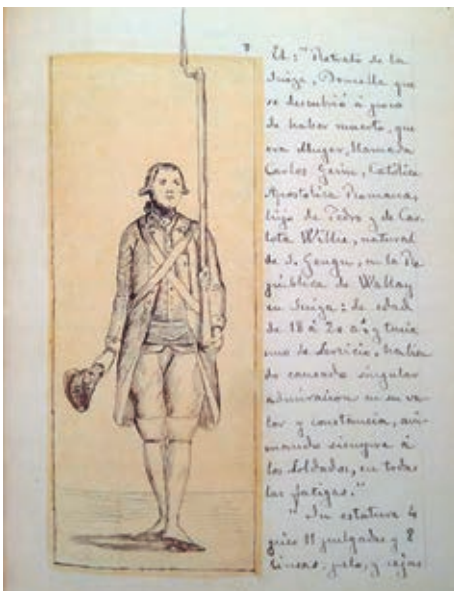 El: "Retrato de la
Suiza, Doncella que
se descubrió á poco
de haber muerto, que
era Muger, llamada
Carlos Gerin, Católica
Apostólica Romana,
hija de Pedro y de Car-
lota Willie, natural
de S. Gengu, en la Re-
pública de Wallay
en Suiza: de edad
de 18 á 20 a.s y tenia
uno de servicio, habien-
do causado singular
admiracion en su va-
lor y constancia, ani-
mando siempre á
los soldados, en todas
las fatigas."
"Su estatura 4
pies 11 pulgadas y 8
lineas, pelo, y cejas